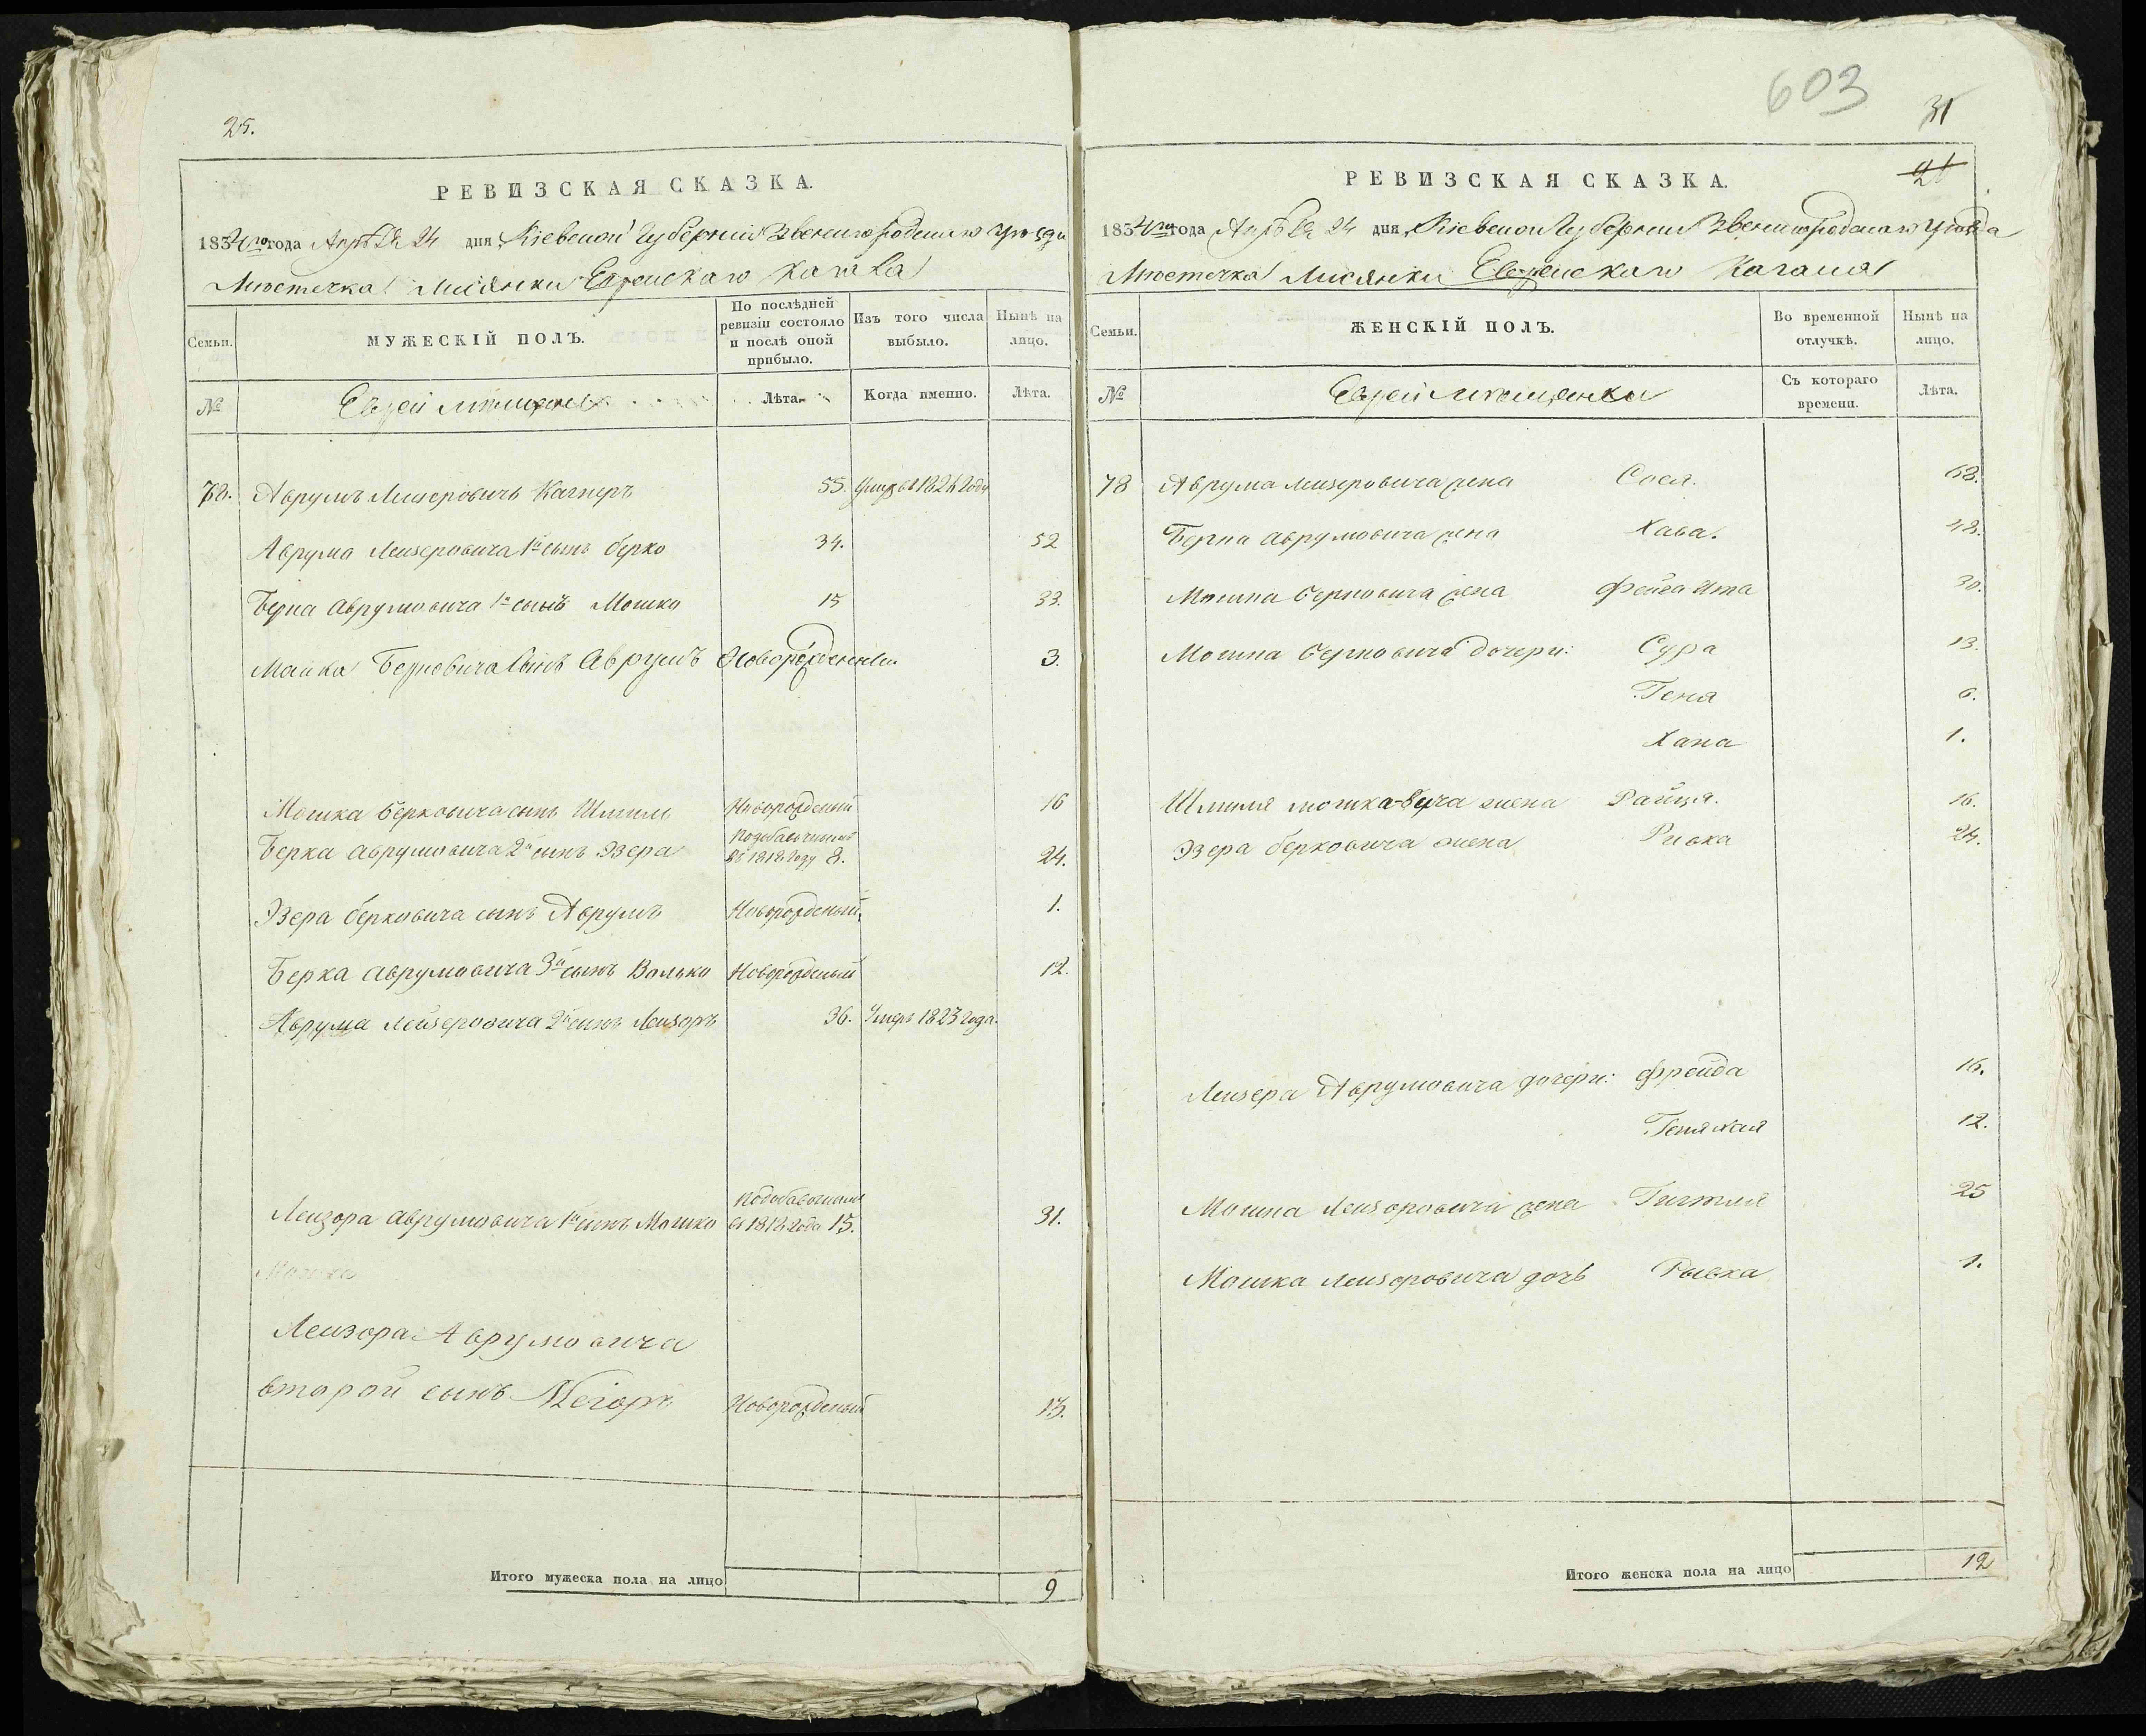 25.
РЕВИЗСКАЯ СКАЗКА.
1834го года Апрѣля 24 дня Кіевской Губерніи Звенигородскаго Уѣзда
Мѣстечка Лисянки Еврейскаго Кагала
Семьи.
МУЖЕСКІЙ ПОЛЪ.
По послѣдней ревизіи состояло и послѣ оной прибыло.
Изъ того числа выбыло.
Нынѣ на лицо.
№
Еврей мѣщане
Лѣта.
Когда именно.
Лѣта.
78. Аврумъ Лейзеровичъ 55.
Аврума Лейзеровича 1й сынъ Берко 34. 52
Берка Аврумовича 1й сынъ Мошко 15 33.
Мошка Берковича сынъ Аврумъ Новорожденный 3.
Мошка Берковича сынъ Шмиль Новорожденый 16
Берка Аврумовича 2й сынъ Эзера въ 1818 году 8. 24.
Эзера Берковича сынъ Аврумъ Новорожденый 1.
Берка Аврумовича 3й сынъ Волько Новорожденый 12.
Аврума Лейзеровича 2й сынъ Лейзоръ 36. Умеръ 1823 года.
Лейзора Аврумовича 1й сынъ Мошко 15. 31.
Мошка
Лейзора Аврумовича
второй сынъ Новорожденый 13.
Итого мужеска пола на лицо 9
603
31
21
РЕВИЗСКАЯ СКАЗКА.
1834го года Апрѣля 24 дня Кіевской Губерніи Звенигородскаго Уѣзда
Мѣстечка Лисянки Еврейскаго Кагала
Семьи.
ЖЕНСКІЙ ПОЛЪ.
Во временной отлучкѣ.
Нынѣ на лицо.
№
Еврей мѣщанки
Съ котораго времени.
Лѣта.
78 Аврума Лейзеровича жена Сося. 68.
Берка Аврумовича жена Хава. 48.
Мошка Берковича жена Фейга Ита 30.
Мошка Берковича дочери: Сура 13.
Геня 6.
Хана 1.
Шмиля Мошковича жена Райця. 16.
Эзера Берковича жена Ривка 24.
Лейзера Аврумовича дочери: Фрейда 16.
12.
Мошка Лейзоровича жена Гитля 25
Мошка Лейзеровича дочь Рывка 1.
Итого женска пола на лицо 12